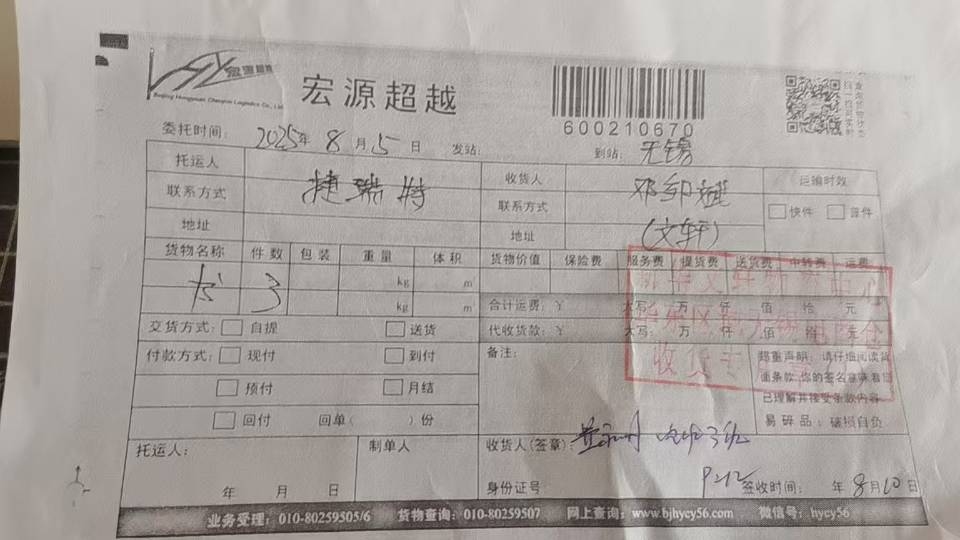 宏源超越
Beijing Hongyuan Chaoyue Logistics Co., Ltd
宏源超越
600210670
委托时间: 2025年 8月 5日 发站: 到站: 无锡
托运人 捷瑞特 收货人 运输时效
联系方式 联系方式 快件 普件
地址 地址 (文轩)
货物名称 件数 包装 重量 体积 货物价值 保险费 服务费 提货费 送货费 中转费 运费
书 3 kg m
kg m
合计运费: ¥ 大写: 万 仟 佰 拾 元
代收货款: ¥ 大写: 万 仟 佰 拾 元
交货方式: 自提 送货
付款方式: 现付 到付
预付 月结
回付 回单( )份
备注:
郑重声明: 请仔细阅读背
面条款,你的签名意味着已
已理解并接受条款内容
易碎品: 破损自负
收货专
托运人: 制单人 收货人(签章):
年 月 日 身份证号 签收时间: 年 8月10日
业务受理: 010-80259505/6 货物查询: 010-80259507 网上查询: www.bjhycy56.com 微信号: hycy56